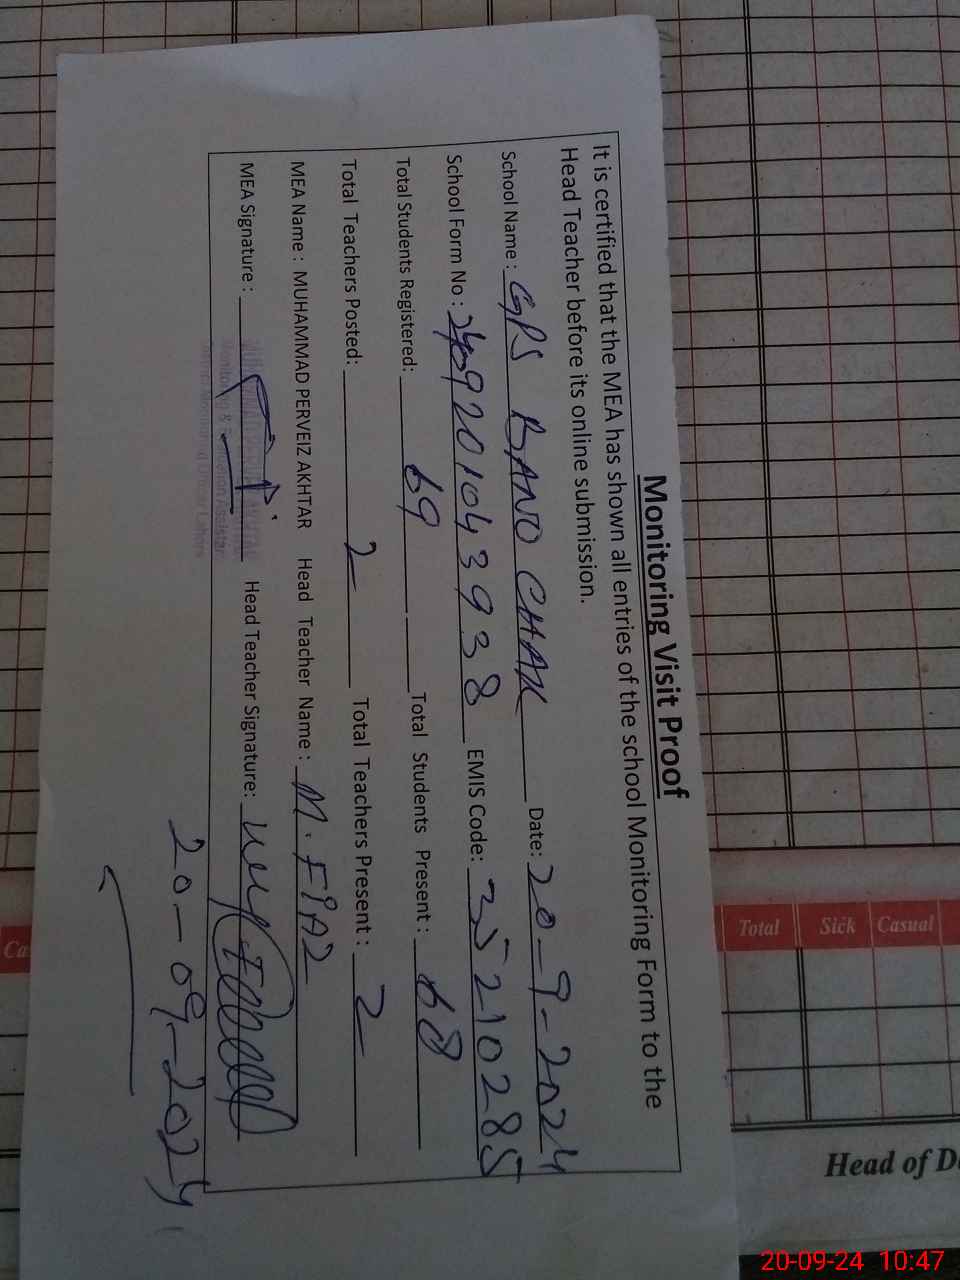 Monitoring Visit Proof
It is certified that the MEA has shown all entries of the school Monitoring Form to the
Head Teacher before its online submission.
School Name: GPS BANO CHAK Date: 20-9-2024
School Form No: 920104 3938 EMIS Code: 35210285
Total Students Registered: 69 Total Students Present: 68
Total Teachers Posted: 2 Total Teachers Present: 2
MEA Name: MUHAMMAD PERVEIZ AKHTAR Head Teacher Name: M. FIAZ
MEA Signature: Head Teacher Signature:
20-09-2024
Total Sick Casual
Head of
20-09-24 10:47